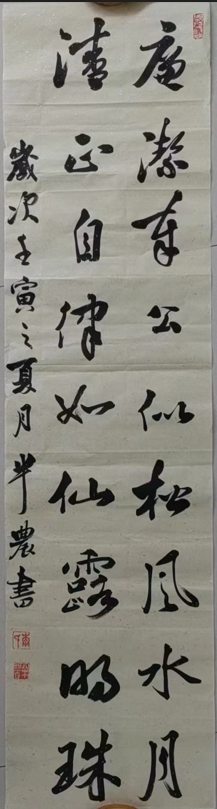 廉潔奉公似松風水月
清正自律如仙露明珠
歲次壬寅之夏月半農書